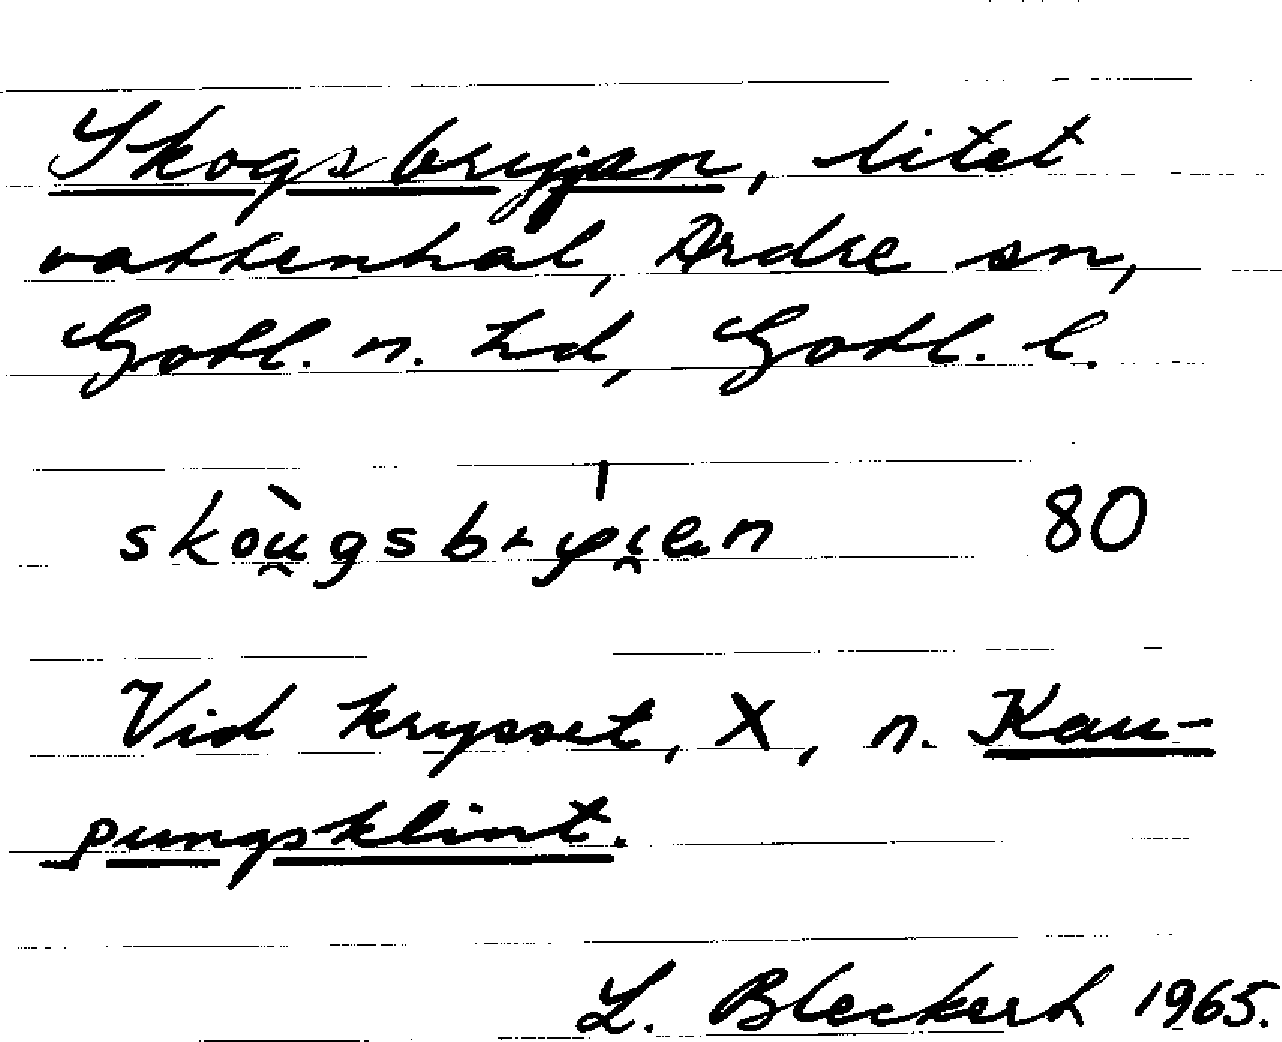 Skogsbryjan, litet
vattenhål, Ardre sn,
Gotl. n. hd, Gotl. l.
skòu̯gsbryi̯en 80
Vid krysset, X, n. Kau-
pungsklint.
L. Bleckert 1965.